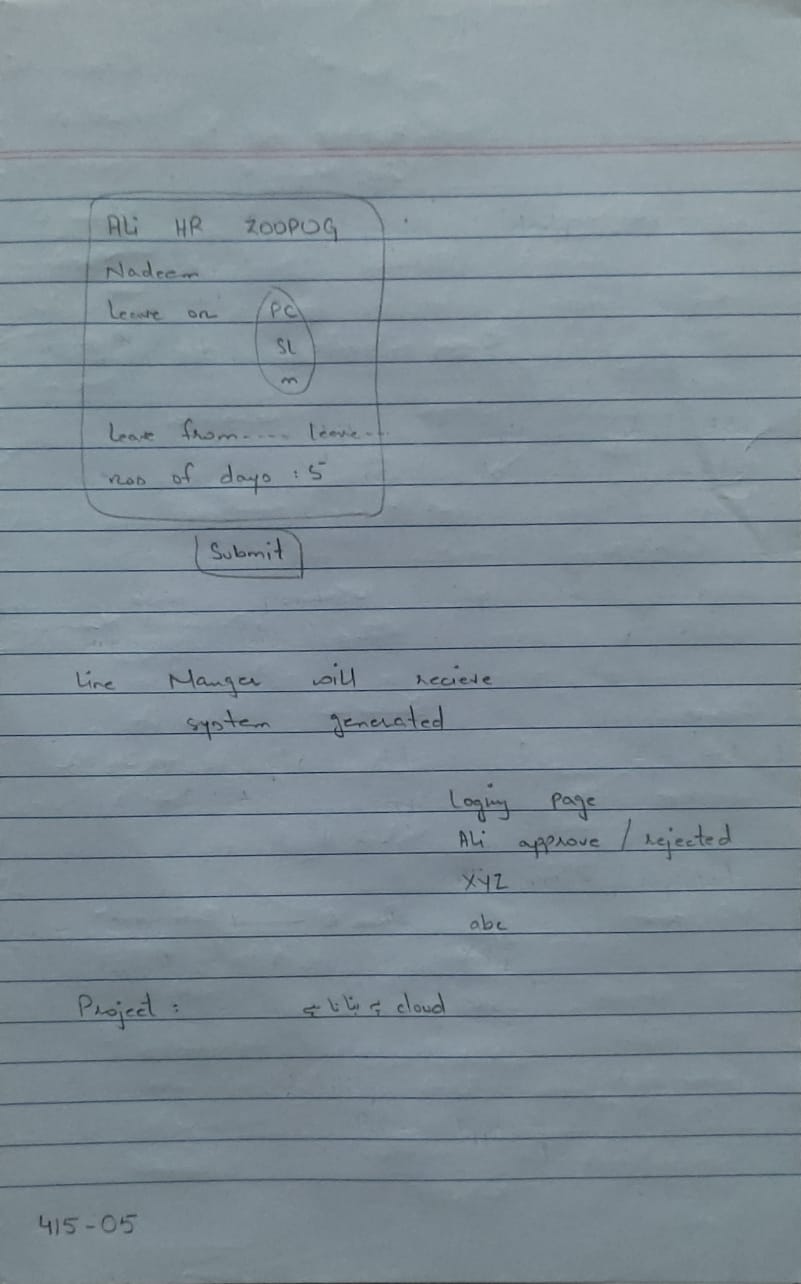 Ali HR ZOOPUG
Nadeem
leave on PC
SL
m
leave from---- leave--
noo of days : 5
Submit
Line Manger will recieve
system generated
Loginy page
Ali approve / rejected
XYZ
abc
Project : cloud پہ بنانا ہے
415-05